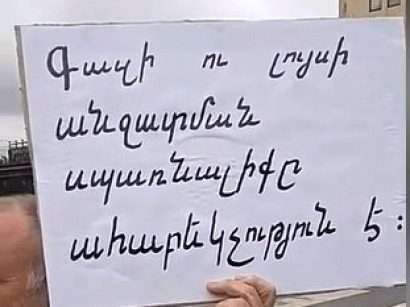 Գազի ու լույսի
անջատման
սպառնալիքը
ահաբեկչություն է։